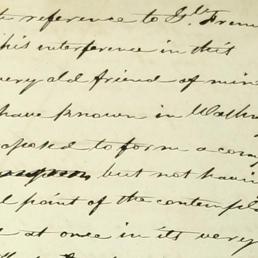 reference to Gl. Frem
his interference in this
very old friend of min
have known in Washin
oposed to form a com
but not havin
l point of the contempl
at once in its very